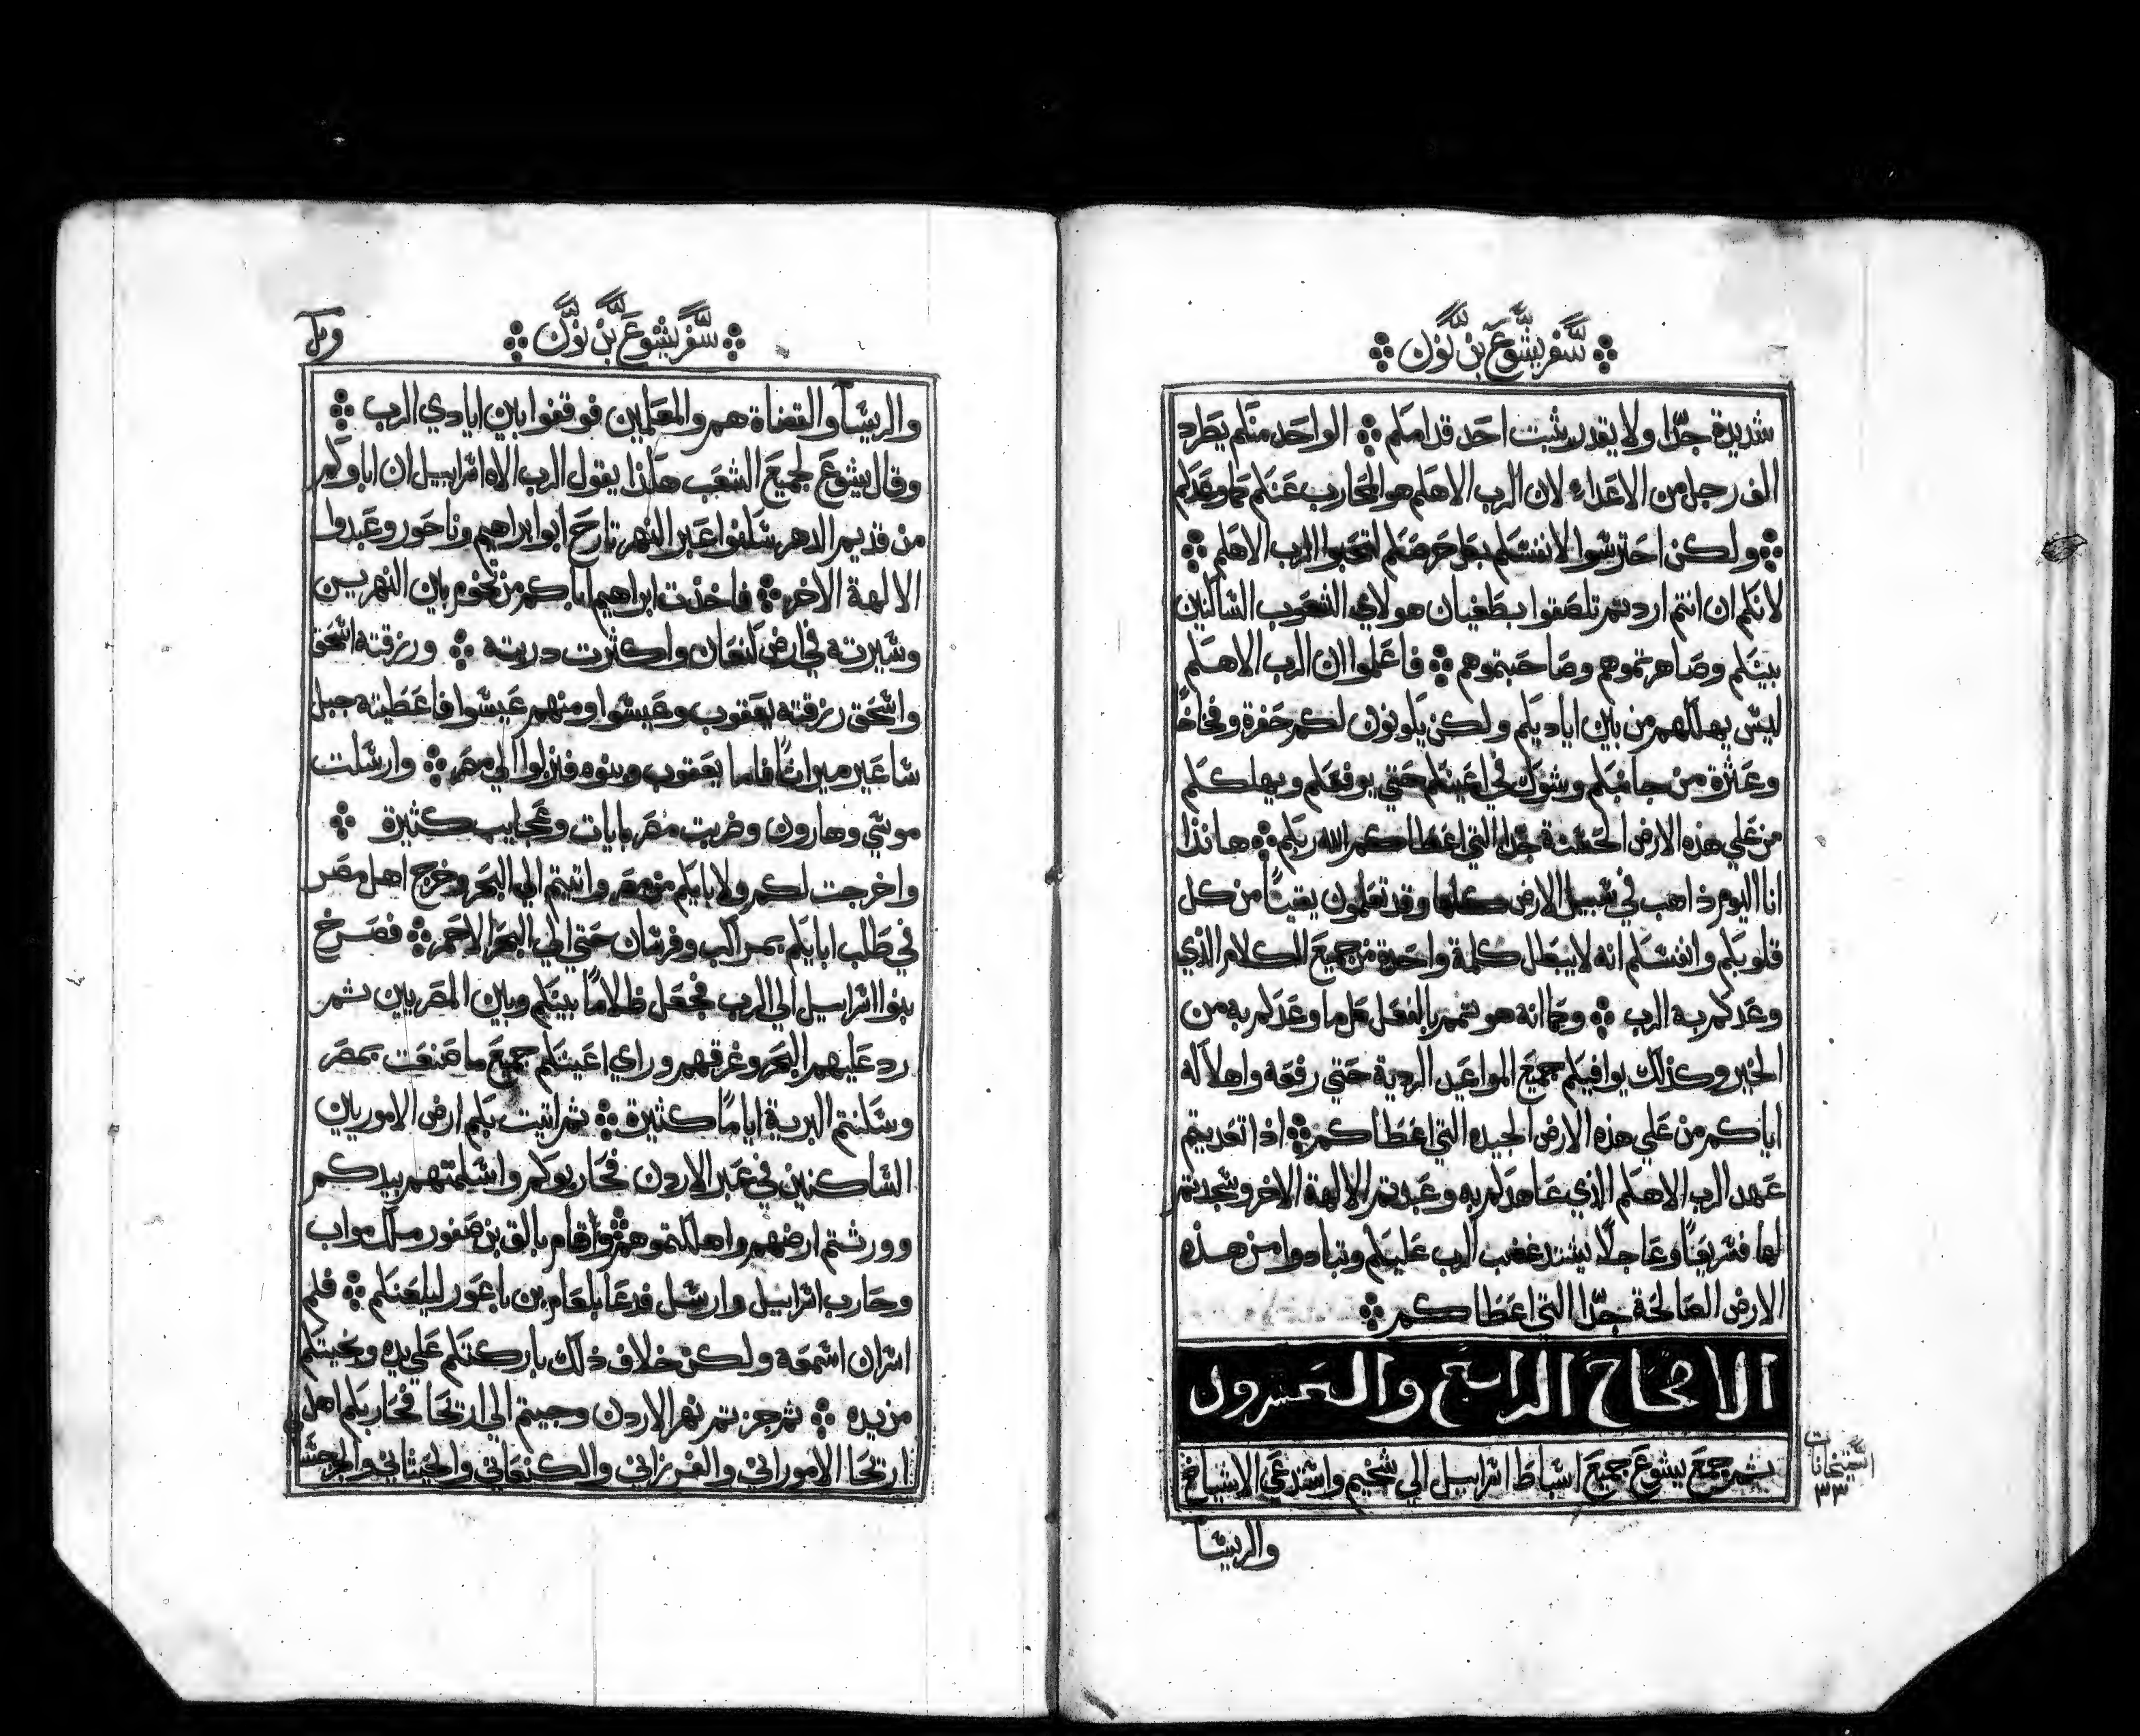 سفر يشوع بن نون
شديدة جدًا ولا يقدر يثبت احد قدامكم الواحد منكم يطرد
الف رجل من الاعداء لان الرب الاهكم هو المحارب عنكم كما وعدكم
ولكن احترسوا لانفسكم بكل حرصكم لتحبوا الرب الاهكم
لانكم ان انتم اردتم تلصقوا بطغيان هولاي الشعوب الساكنين
بينكم وصاهرتموهم وصاحبتموهم فاعلموا ان الرب الاهكم
ليس يهلكهم من بين اياديكم ولكن يكونون لكم حفرة وفخاخًا
وعثرة من جانبكم وشوك في اعينكم حتي يرفعكم ويهلككم
من علي هذه الارض الحسنة جدا التي اعطاكم الله ربكم هانذا
انا اليوم ذاهب في سبيل الارض كلها وقد تعلمون يقينًا من كل
قلوبكم وانفسكم انه لا يبطل كلمة واحدة من جميع الكلام الذي
وعدكم به الرب وكما انه هو تمم بالفعل كل ما وعدكم به من
الخير وكذلك يوافيكم جميع المواعيد الردية حتي رفعه واهلاكه
اياكم من علي هذه الارض الجيده التي اعطاكم اذا تعديتم
عهد الرب الاهكم الذي عاهدكم به وعبدتم الالهة الاخر وسجدتم
لها فسريعًا وعاجلًا يشتد غضب الرب عليكم وتبادوا من هذه
الارض الصالحة جدًا التي اعطاكم
الاصحاح الرابع والعشرون
ثم جمع يشوع جميع اسباط اسراييل الي شخيم واستدعي الاشياخ
٣٣
والريسا
سفر يشوع بن نون
والريسآ والقضاة هم والمعلمين فوقفوا بين ايادي الرب
وقال يشوع لجميع الشعب هكذا يقول الرب الاه اسراييل ان اباوكم
من قديم الدهر سكنوا عبر النهر تارح ابو ابراهيم وناحور وعبدوا
الالهة الاخر فاخذت ابراهيم اباكم من تخوم بين النهرين
وسيرته في ارض كنعان واكثرت دريته ورزقته اسحق
واسحق رزقته يعقوب وعيسوا ومنهم عيسوا فاعطيته جبل
ساعير ميراثًا فاما يعقوب وبنوه فنزلوا الي مصر وارسلت
موسي وهارون وضربت مصر بايات وعجايب كثيرة
واخرجت لكم ولابايكم من مصر واتيتم الي البحر وخرج اهل مصر
في طلب ابايكم بمراكب وفرسان حتي الي البحر الاحمر فصرخ
بنوا اسراييل الي الرب فجعل ظلامًا بينكم وبين المصريين ثم
رد عليهم البحر وغرقهم وراي اعينكم جميع ما صنعت بمصر
وسكنتم البرية ايامًا كثيرة ثم اتيت بكم ارض الاموريين
الساكنين في عبر الاردن فحاربوكم واسلمتهم بيدكم
وورثتم ارضهم واهلكتموهم واقام بالق بن صفور ملك مواب
وحارب اسراييل وارسل فدعا بلعام بن باعور ليلعنكم فلم
اسر ان اسمعه ولكن خلاف ذلك باركتكم علي يده ونجيتكم
من يده ثم جزتم نهر الاردن وجيتم الي اريحا فحاربكم اهل
اريحا الاموراني والفرزاني والكنعاني والحيثاني والجرجسا